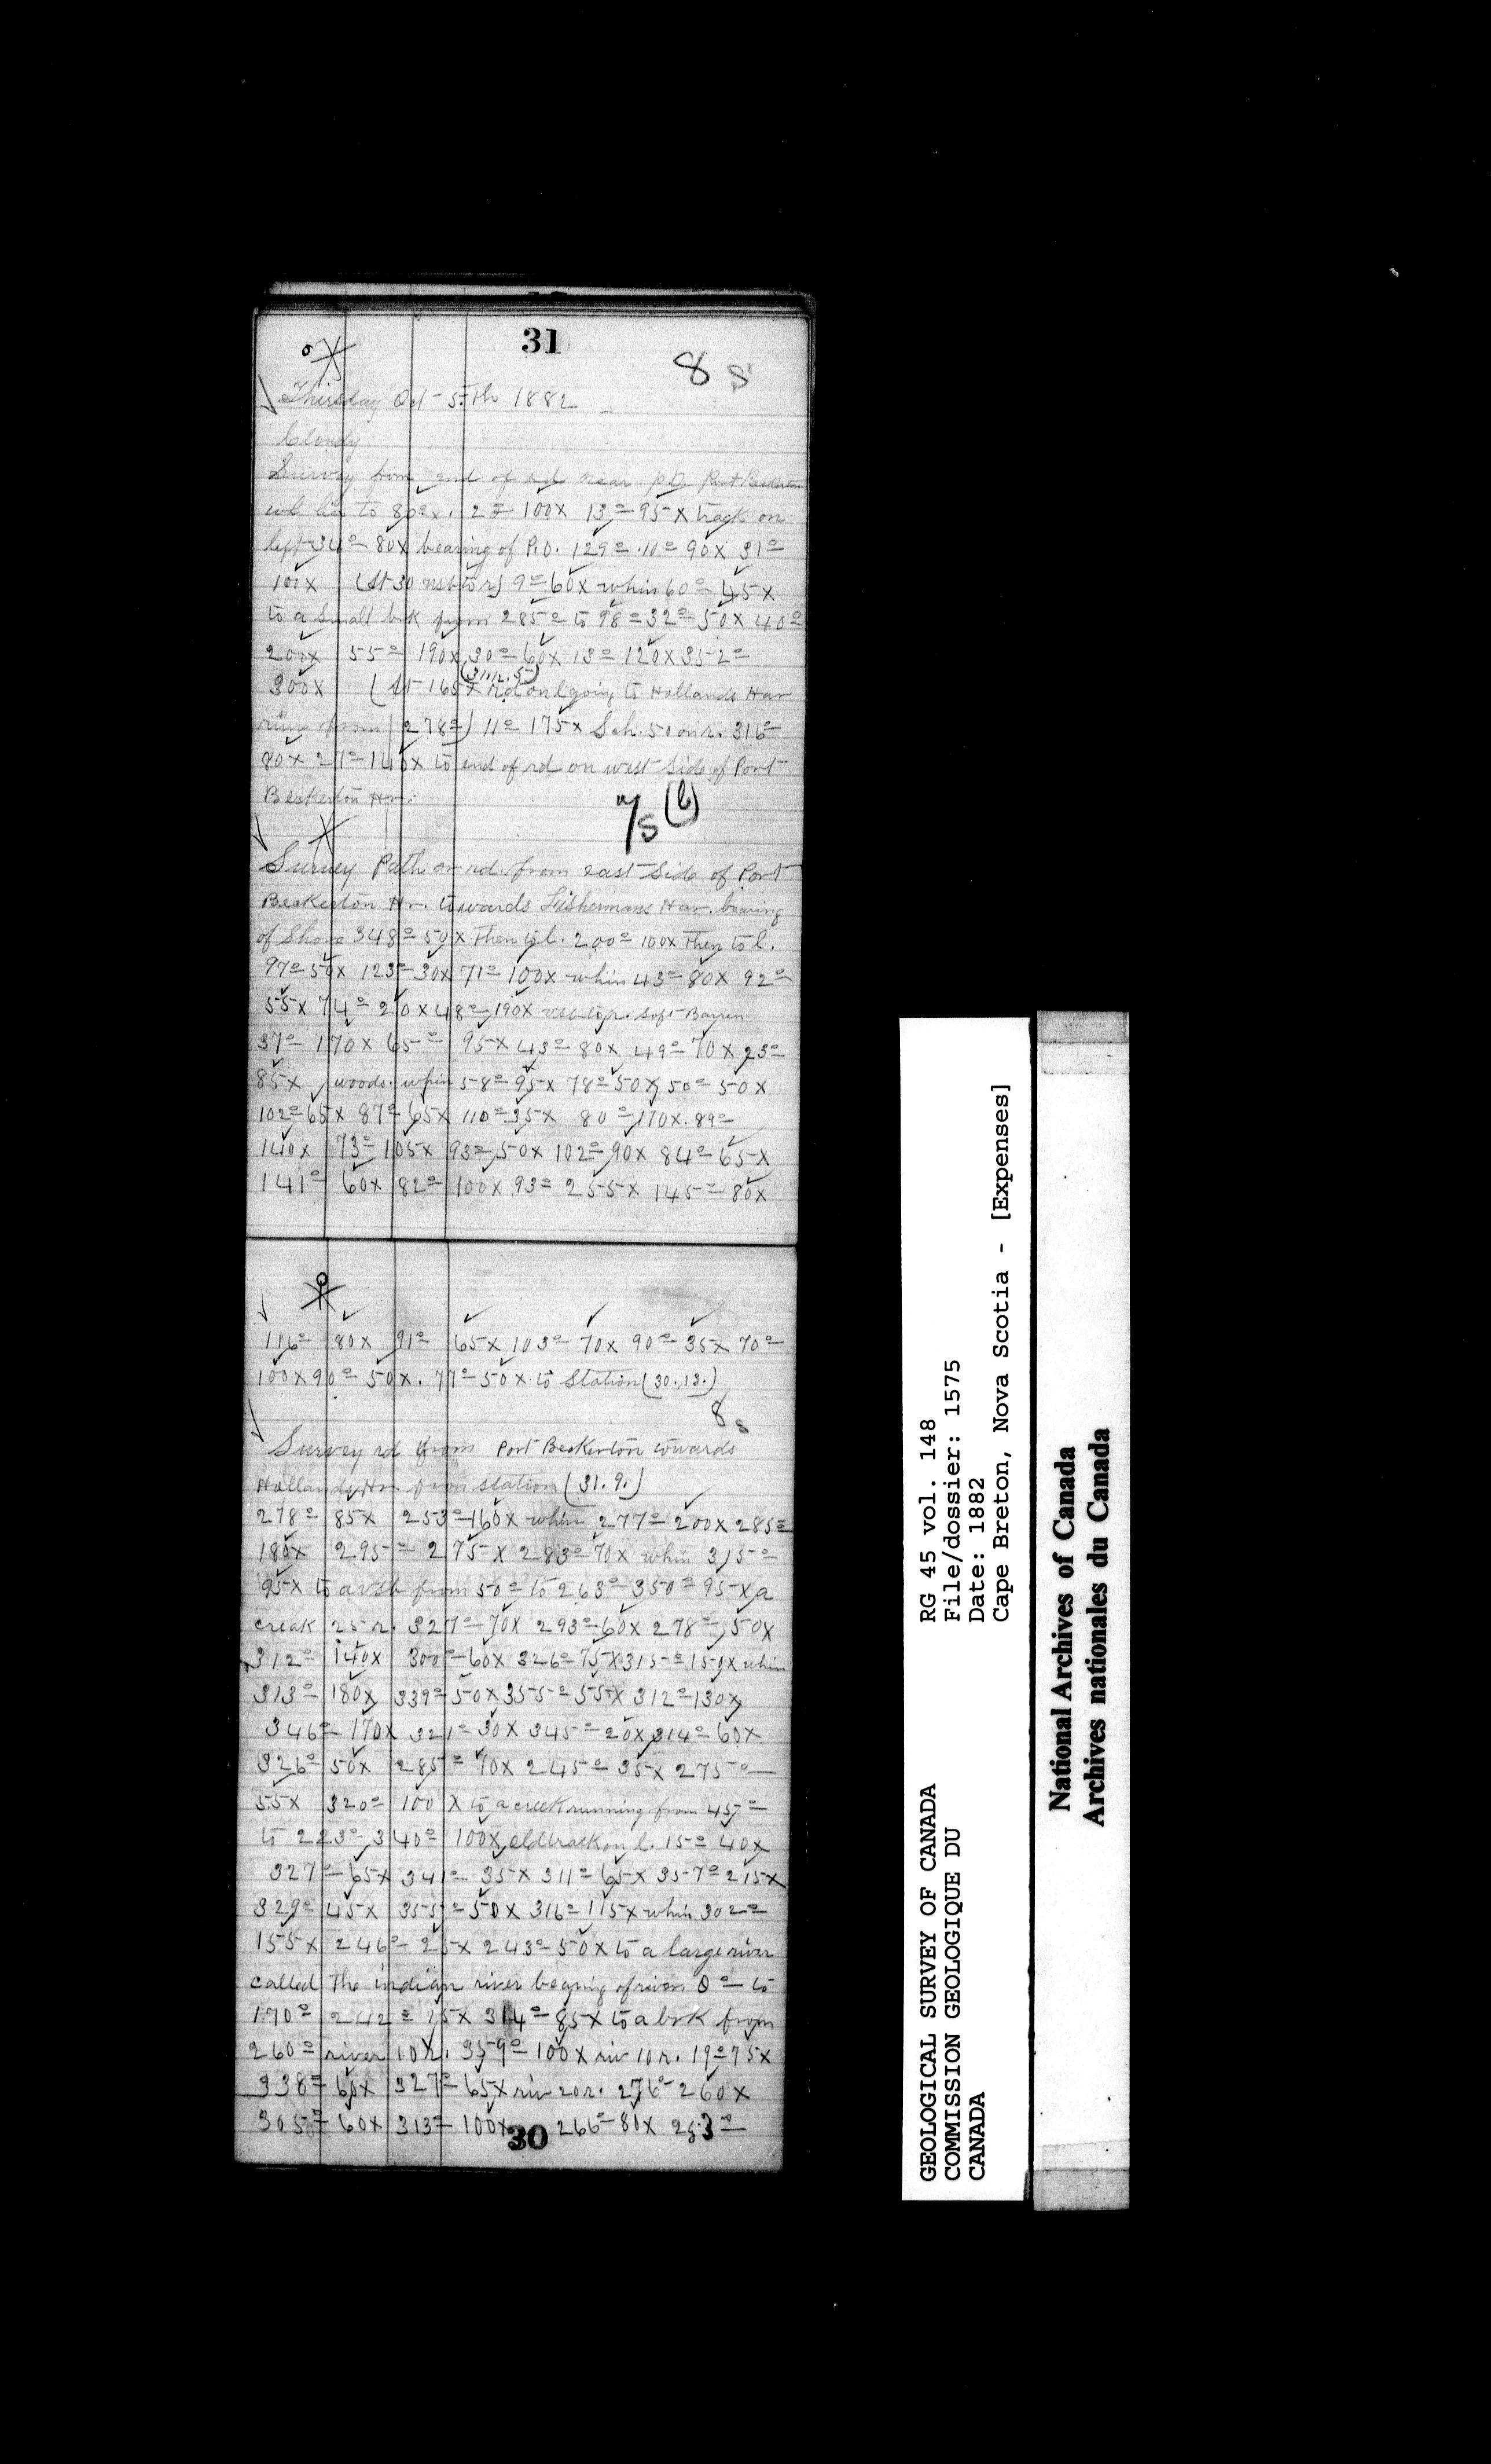 31
8 s
Thirsday Oct 5th 1882
Cloudy
Survey from end of rd near P.O. Port Beckerton
to 80º x. 2º 100x 13º 95x track on
left 34º 80x bearing of P.O. 129º. 11º 90x 31º
100x (St 30 to r) 9º 60x whin 60º 45x
to a small brk from 285º to 98º 32º 50x 40º
200x 55º 190x 30º 60x 13º 120x 352º
(31.12.5)
300x (At 165x rd on l going to Hollands Har
from 278º) 11º 175x Sch. 50 on r. 316º
80x 27º 140x to end of rd on west side of Port
Beckerton Hr.
7s (b)
Survey Path or rd. from east side of Port
Beckerton Hr. towards Fishermans Har. bearing
of Shore 348º 50x Then to l. 200º 100x Then to l.
97º 50x 123º 30x 71º 100x whin 43º 80x 92º
55x 74º 210x 48º 190x to r. Soft Barren
37º 170x 65º 95x 43º 80x 49º 70x 23º
85x woods. whin 58º 95x 78º 50x 50º 50x
102º 65x 87º 65x 110º 35x 80º 170x. 89º
140x 73º 105x 93º 50x 102º 90x 84º 65x
141º 60x 82º 100x 93º 255x 145º 80x
116º 80x 91º 65x 103º 70x 90º 35x 70º
100x 90º 50x. 77º 50x to Station (30.13.)
8 s
Survey rd from Port Beckerton towards
Hollands Hr from station (31.9.)
278º 85x 253º 160x whin 277º 200x 285º
180x 295º 275x 283º 70x whin 315º
95x to a vsb from 50º to 263º 350º 95x a
creak 25 r. 327º 70x 293º 60x 278º 50x
312º 140x 300º 60x 326º 75x 315º 150x whin
313º 180x 339º 50x 355º 55x 312º 130x
346º 170x 321º 30x 345º 20x 314º 60x
326º 50x 285º 70x 245º 35x 275º
55x 320º 100x to a creek running from 45º
to 223º 340º 100x old track on l. 15º 40x
327º 65x 341º 35x 311º 65x 357º 215x
329º 45x 355º 50x 316º 115x whin 302º
155x 246º 25x 243º 50x to a large river
called The indian river bearing of river 0º to
170º 242º 15x 314º 85x to a brk from
260º river 10 r. 359º 100x riv 10 r. 19º 75x
338º 60x 327º 65x riv 20 r. 276º 260x
305º 60x 313º 100x 266º 80x 253º
30
GEOLOGICAL SURVEY OF CANADA
COMMISSION GEOLOGIQUE DU
CANADA
RG 45 vol. 148
File/dossier: 1575
Date: 1882
Cape Breton, Nova Scotia - [Expenses]
National Archives of Canada
Archives nationales du Canada